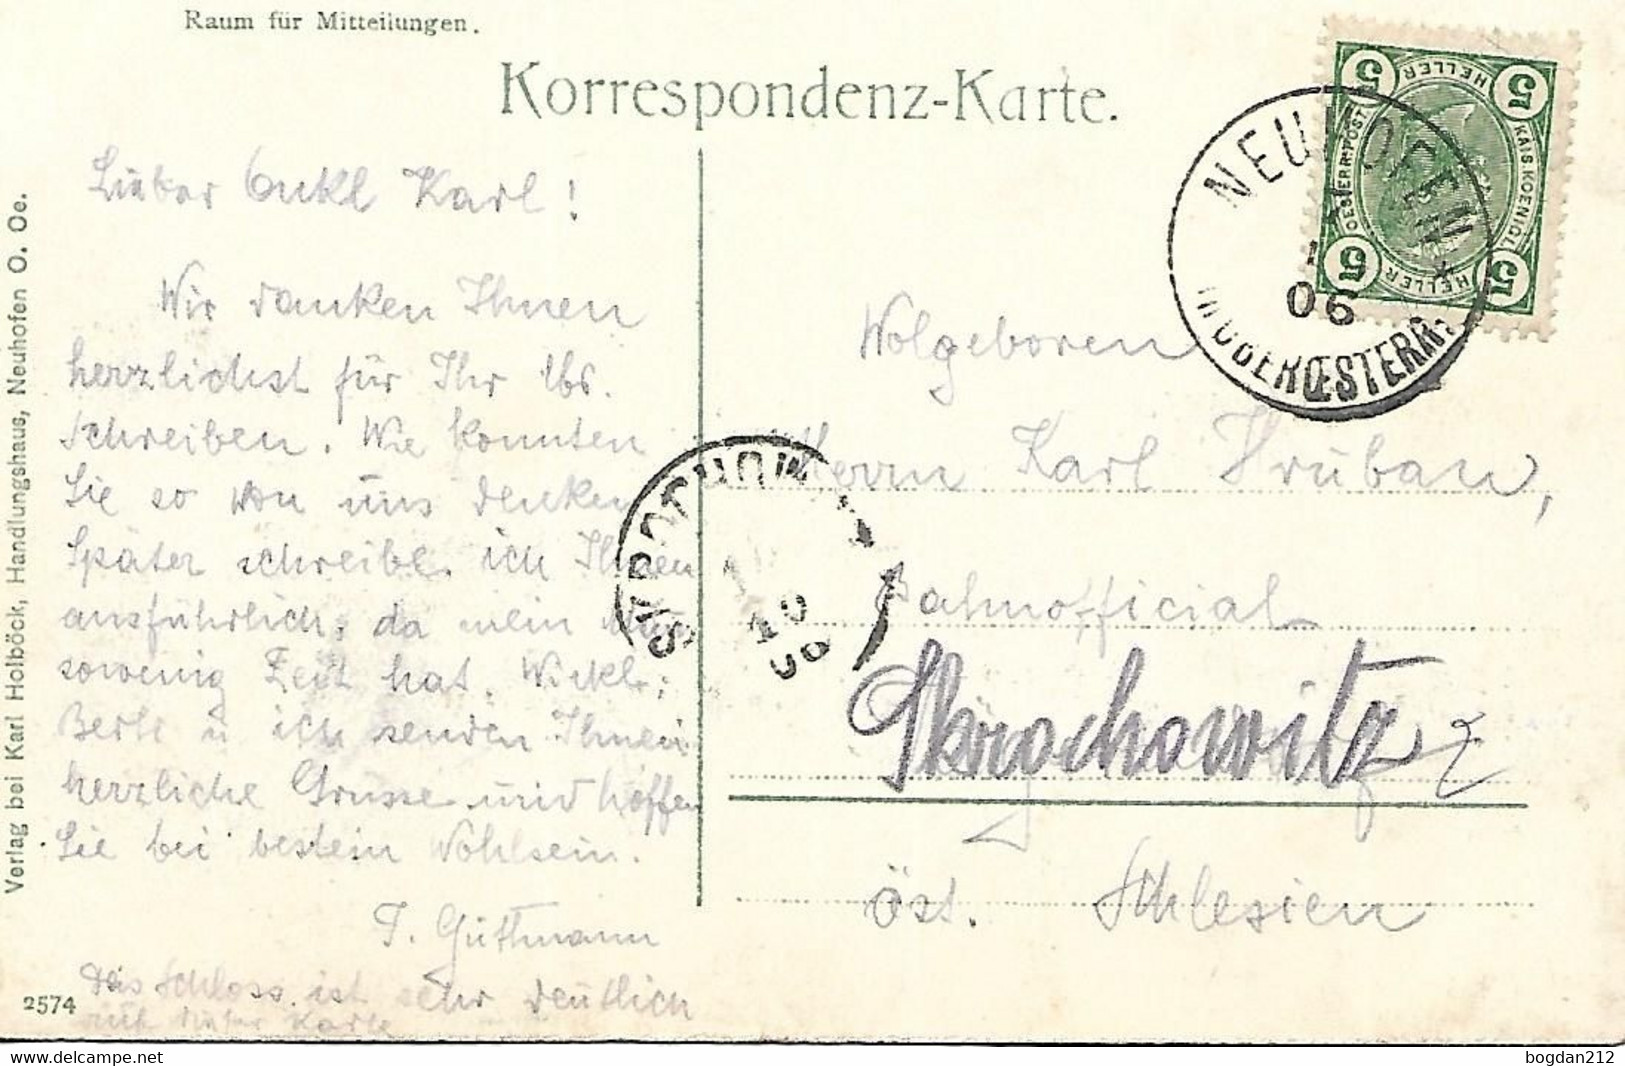 Raum für Mitteilungen.
Korrespondenz-Karte.
5 HELLER 5
KAIS. KOENIGL.
OESTERR. POST
5 HELLER 5
NEUHOFEN
06
NIEDERŒSTERR.
Lieber Onkl Karl!
Wir danken Ihnen
herzlichst für Ihr lbs.
Schreiben. Wie konnten
Sie so von uns denken
Später schreibe ich Ihnen
ausführlich, da mein
sowenig Zeit hat.
Berti u ich senden Ihnen
herzliche Grüsse und hoffen
Sie bei bestem Wohlsein.
J. Guttmann
Das Schloss ist sehr deutlich
auf dieser Karte
Wolgeboren
Herrn Karl Hruban,
Bahnofficial
Skrochowitz
öst. Schlesien
SKROCHOW
10
06
Verlag bei Karl Holböck, Handlungshaus, Neuhofen O. Oe.
2574
delcampe.net
bogdan212